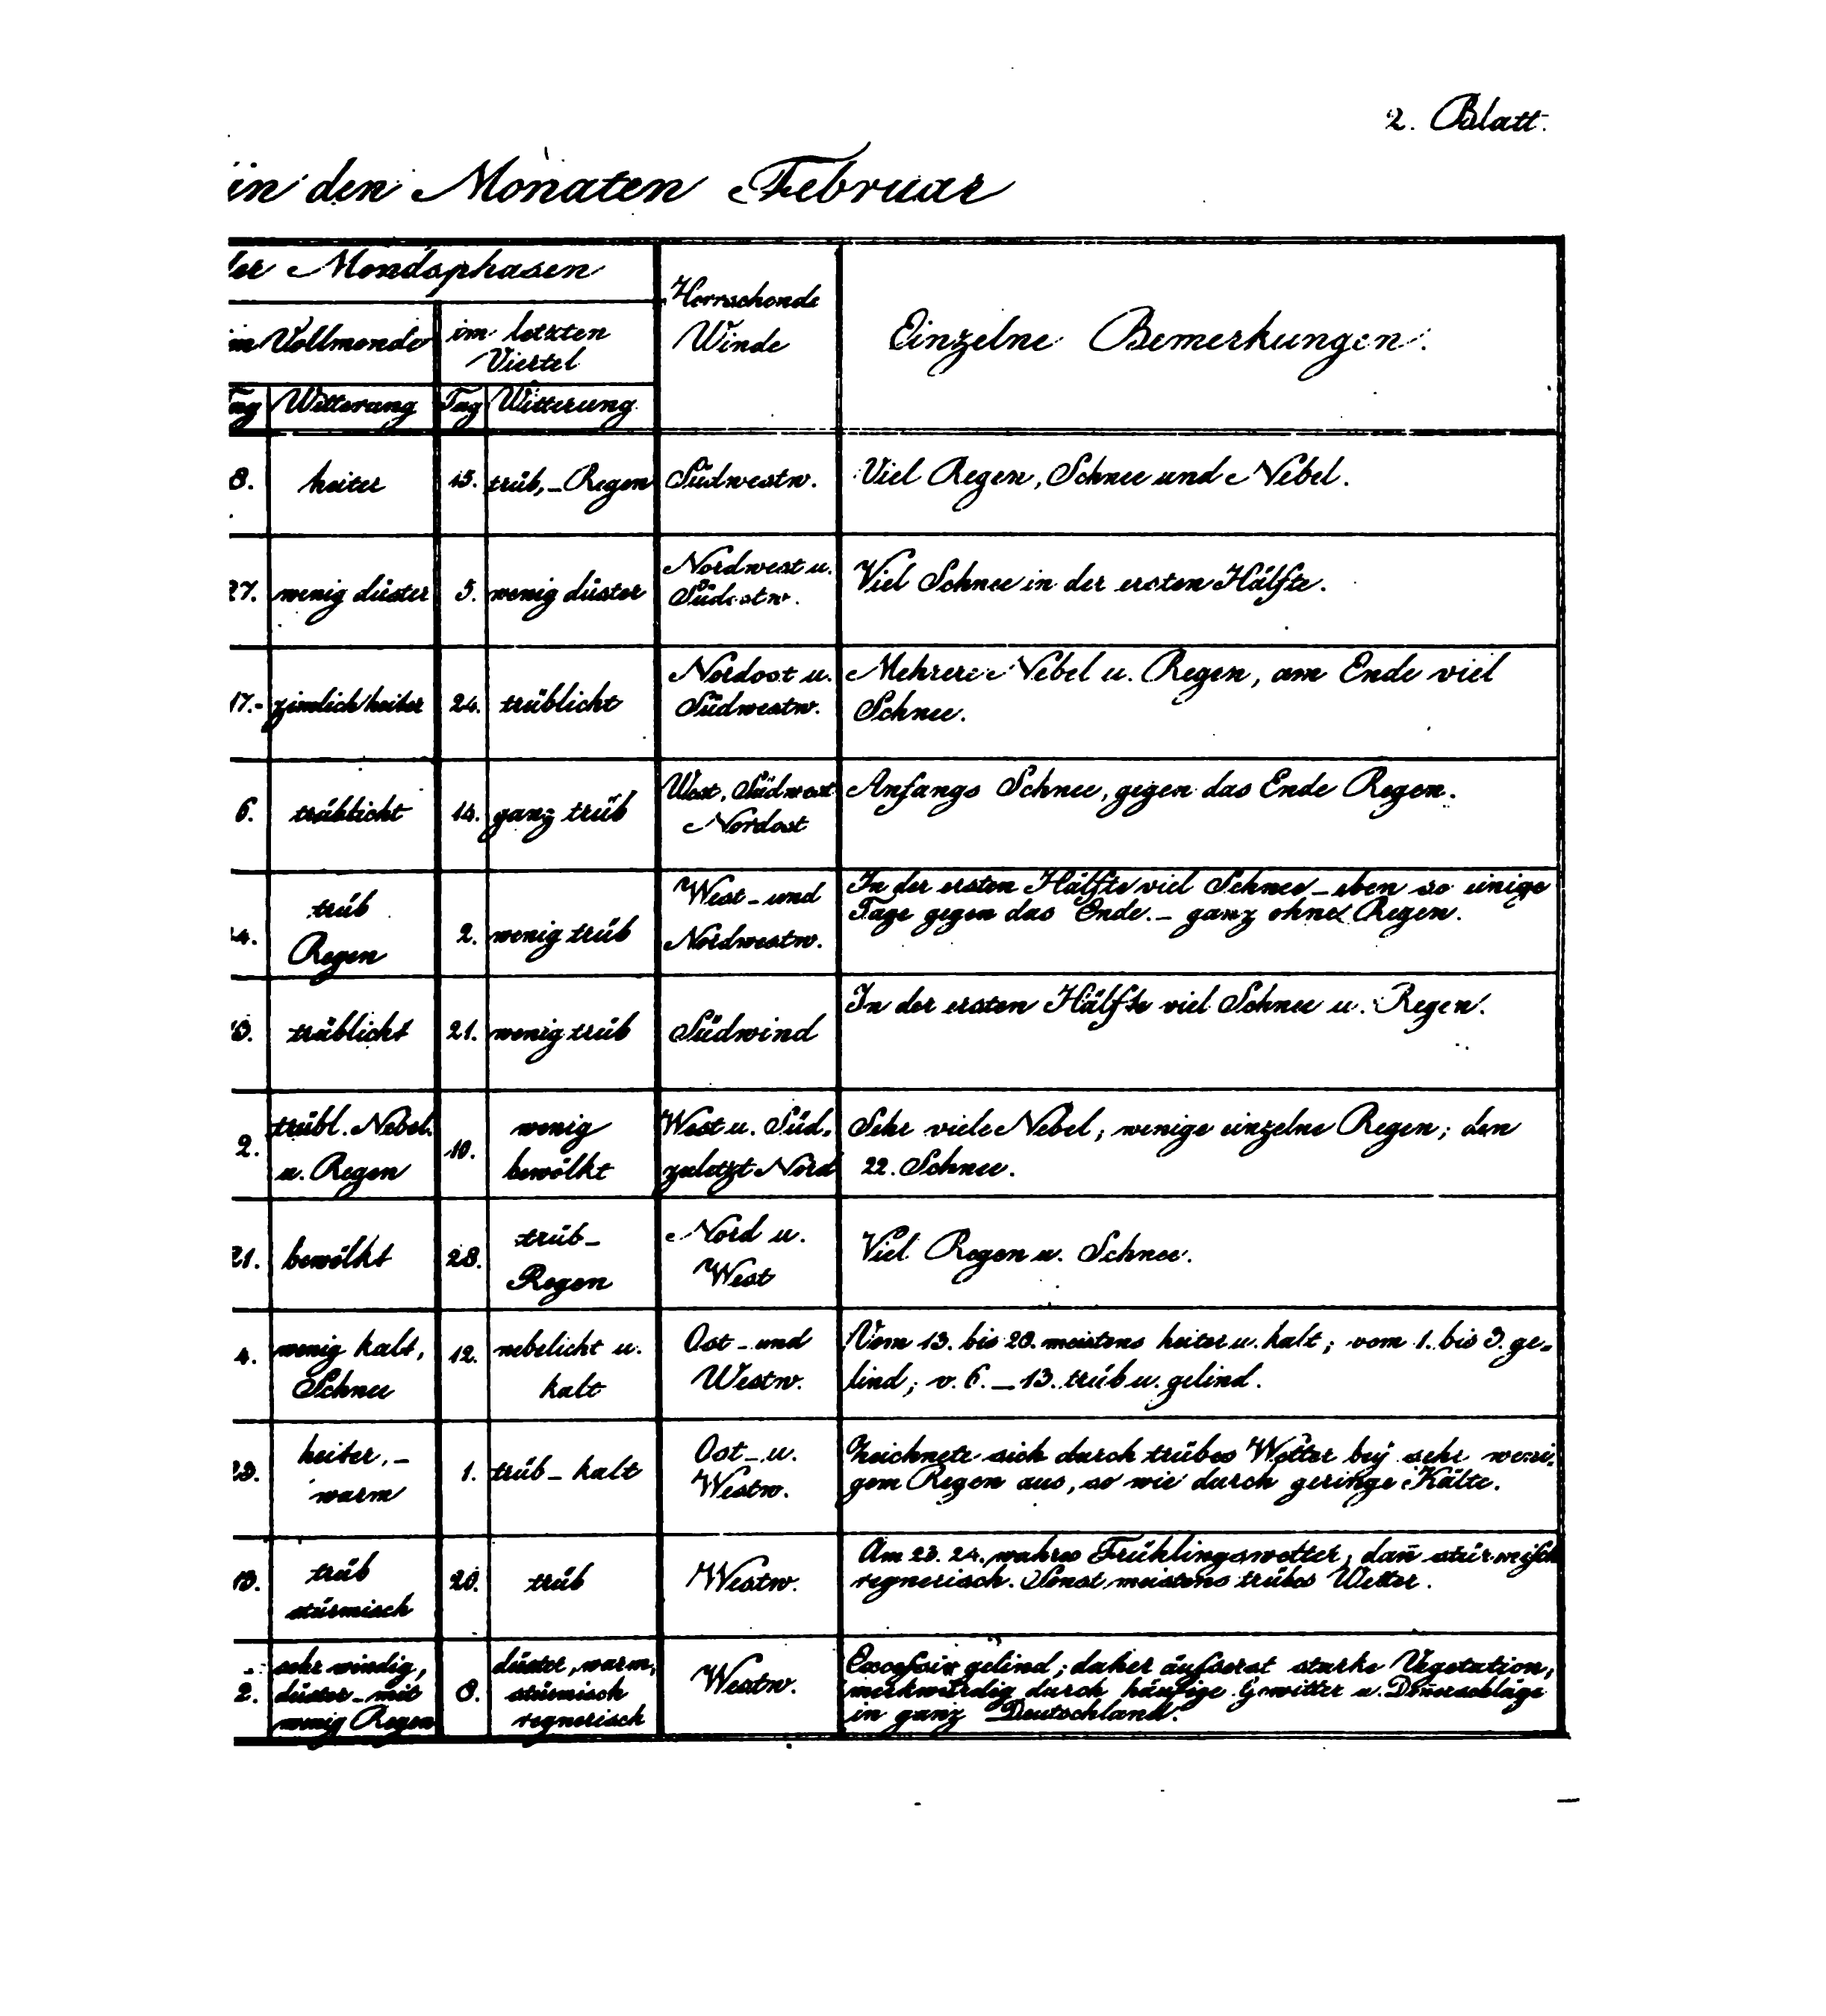 2. Blatt.
in den Monaten Februar
der Mondsphasen
Herrschende
Winde
Einzelne Bemerkungen.
im Vollmonde
im letzten
Viertel
Tag Witterung Tag Witterung
8. heiter 15. trüb, - Regen Südwestw. Viel Regen, Schnee und Nebel.
27. wenig düster 5. wenig düster Nordwest u.
Südostw.
Viel Schnee in der ersten Hälfte.
17. zimlich heiter 24. trüblicht Nordost u.
Südwestw.
Mehrere Nebel u. Regen, am Ende viel
Schnee.
6. trüblicht 14. ganz trüb West, Südwest
Nordost
Anfangs Schnee, gegen das Ende Regen.
trüb
Regen
2. wenig trüb West - und
Nordwestw.
In der ersten Hälfte viel Schnee - eben so einige
Tage gegen das Ende. - ganz ohne Regen.
trüblicht 21. wenig trüb Südwind In der ersten Hälfte viel Schnee u. Regen.
2. trübl. Nebel
u. Regen
10. wenig
bewölkt
West u. Süd,
zuletzt Nord
Sehr viele Nebel; wenige einzelne Regen; den
22. Schnee.
21. bewölkt 28. trüb -
Regen
Nord u.
West
Viel Regen u. Schnee.
4. wenig kalt,
Schnee
12. nebelicht u.
kalt
Ost - und
Westw.
Vom 13. bis 20. meistens heiter u. kalt; vom 1. bis 3. ge-
lind; v. 6. - 13. trüb u. gelind.
heiter, -
warm
1. trüb - kalt Ost - u.
Westw.
Zeichnete sich durch trübes Wetter beÿ sehr weni-
gem Regen aus, so wie durch geringe Kälte.
trüb
stürmisch
20. trüb Westw. Am 23. 24. wahres Frühlingswetter, dan̄ stürmisch
regnerisch. Sonst meistens trübes Wetter.
2. sehr windig,
düster - mit
wenig Regen
8. düster, warm,
stürmisch
regnerisch
Westw. Excessiv gelind; daher äusserst starke Vegetation,
merkwürdig durch häufige Gewitter u. Don̄erschläge
in ganz Deutschland.